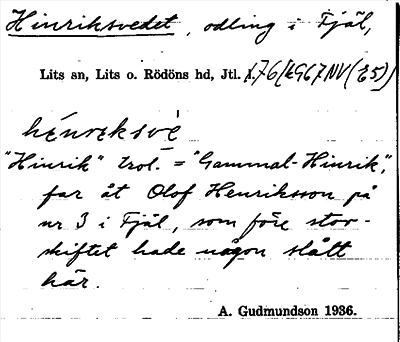 Hinriksvedet, odling i Fjäl,
Lits sn, Lits o. Rödöns hd, Jtl.
hénrɛksvè
"Hinrik" trol. = "Gammal-Hinrik",
far åt Olof Henriksson på
nr 3 i Fjäl, som före stor-
skiftet hade någon slått
här.
A. Gudmundson 1936.